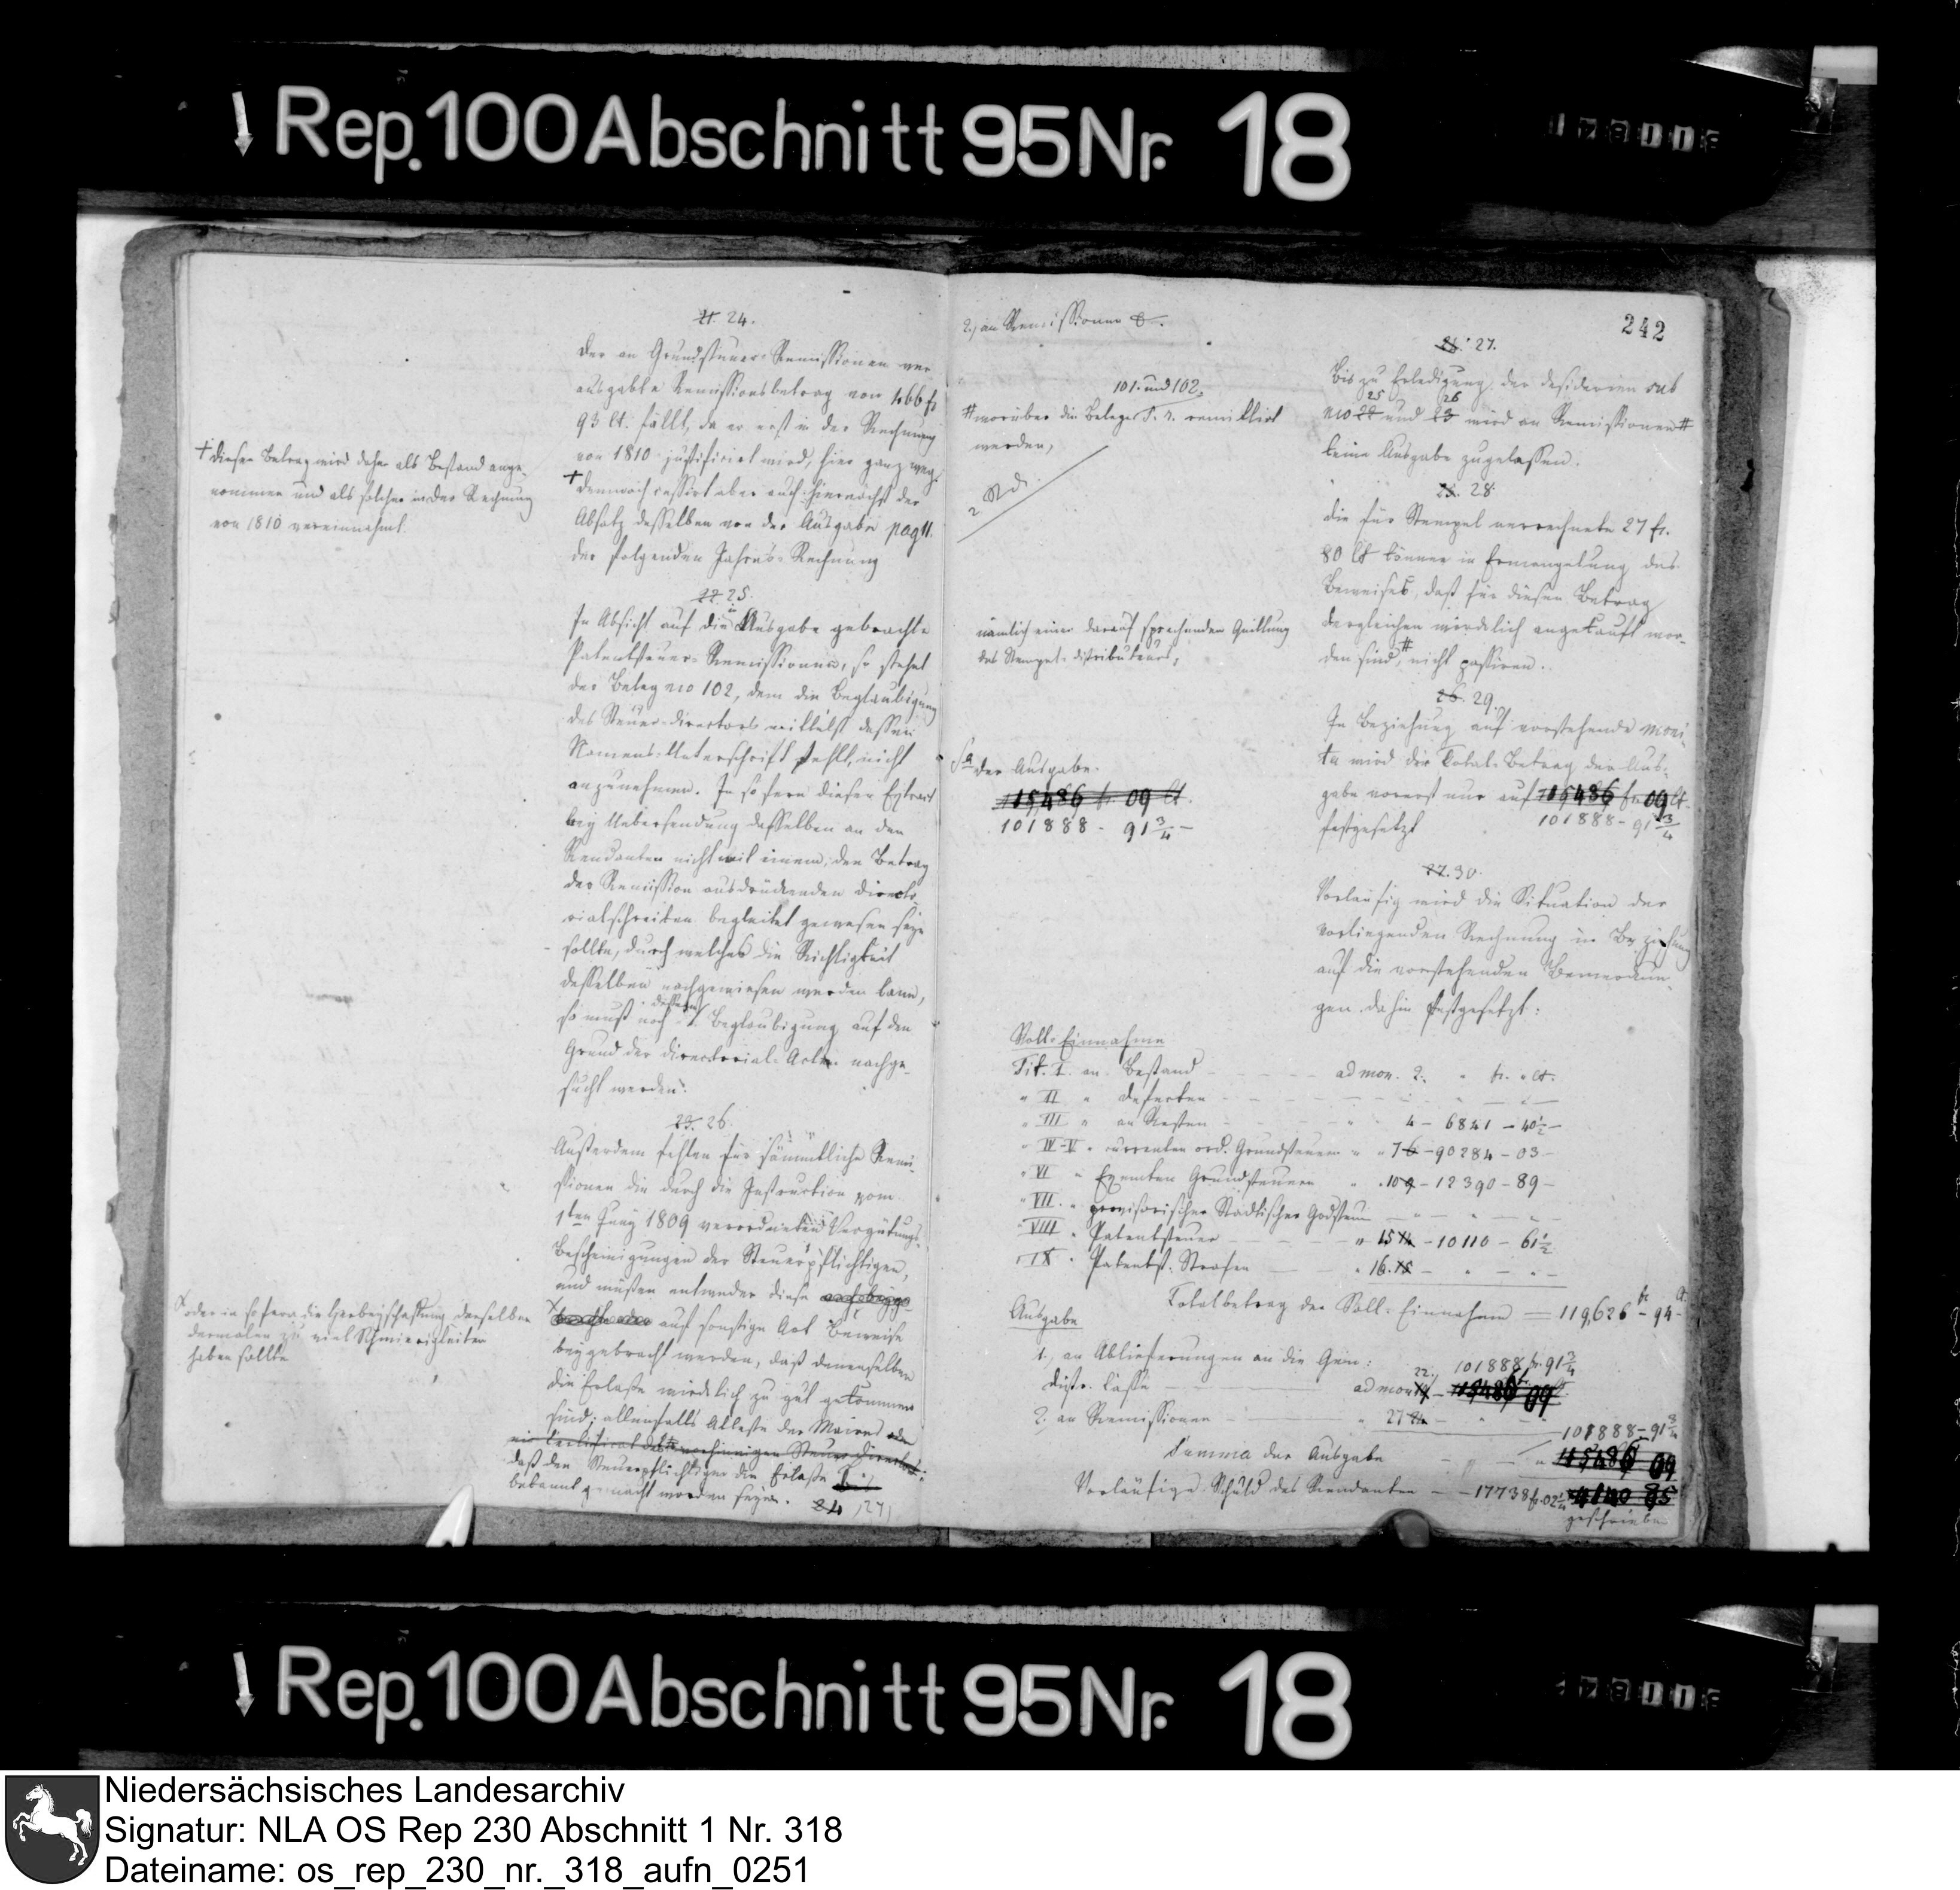 Rep. 100 Abschnitt 95 Nr. 18
21. 24.
Der an Grundsteuer-Remissionen ver
ausgabte Remissionsbetrag von 166 fr
93 Ct. fällt, da er erst in der Rechnung
von 1810 justificirt wird, hier ganz weg,
† demnach cessirt aber auch hiernächst der
Absatz desselben von der Ausgabe pag 11.
der folgenden Jahres-Rechnung
† dieser Betrag wird daher als Bestand ange-
nommen und als solcher in der Rechnung
von 1810 vereinnahmt.
22. 25.
In Absicht auf die in Ausgabe gebrachte
Patentsteuer-Remissionen, so stehet
der Beleg nro 102, dem die Beglaubigung
des Steuer-Directors mittelst dessen
Namens-Unterschrift fehlt, nicht
anzunehmen. In so fern dieser Extract
bey Uebersendung desselben an den
Rendanten nicht mit einem, den Betrag
der Remission ausdrückenden Directo-
rialschreiben begleitet gewesen seyn
sollte, durch welches die Richtigkeit
desselben nachgewiesen werden kann,
so muß noch dessen Beglaubigung auf den
Grund der Directorial-Acten nachge-
sucht werden.
23. 26.
Außerdem fehlen für sämmtliche Remi-
ssionen die durch die Instruction vom
1ten Juny 1809 verordneten Vergütungs-
Bescheinigungen der Steuerpflichtigen,
und müßen entweder diese
auf sonstige Art Beweise
beygebracht werden, daß denenselben
die Erlaße wirklich zu gut gekommen
sind; allenfalls Atteste der Maires oder
daß den Steuerpflichtigen die Erlaße
bekannt gemacht worden seyen.
24, 27,
oder in sofern die Herbeyschaffung derselben
dermalen zu viel Schwierigkeiten
haben sollte
242
2., an Remissionen
101. und 102,
# worüber die Belege S. r. remittirt
werden,
24. 27.
Bis zu Erledigung der Desiderien sub
nro 22 25 und 23 26 wird an Remissionen #
keine Ausgabe zugelassen.
25. 28.
Die für Stempel verrechnete 27 fr.
80 Ct können in Ermangelung des
Beweises, daß für diesen Betrag
dergleichen wirklich angekauft wor-
den sind, # nicht passiren.
nämlich einer darauf sprechenden Quittung
des Stempel-Distributeurs,
26. 29.
In Beziehung auf vorstehende Moni-
ta wird der Total-Betrag der Aus-
gabe vorerst nur auf 115486 fr 09 Ct.
festgesetzt 101888 - 91 3/4
Sa der Ausgabe.
115,486 fr. 09 Ct.
101888 - 91 3/4 -
27. 30.
Vorläufig wird die Situation der
vorliegenden Rechnung in Beziehung
auf die vorstehenden Bemerkun-
gen dahin festgesetzt:
Soll-Einnahme
Tit. I. an Bestand - - - ad mon. 2. " fr. " Ct.
" II " Defecten - - -
" III " an Resten - - - " 4 - 6841 - 40 1/2 -
" IV-V " currenten ord. Grundsteuern " " 7 6 - 90284 - 03 -
" VI " Exemten Grundsteuern " " 10 9 - 12390 - 89 -
" VII. " provisorischer Städtischer Grdsteuer - - -
" VIII " Patentsteuer - - - " 15 14 - 10110 - 61 1/2
" IX " Patentst. Strafen - - " 16. 15 - " - " -
Totalbetrag der Soll-Einnahme = 119,626 fr. - 94 Ct.
Ausgabe
1., an Ablieferungen an die Gen: 101888 fr. 91 3/4
Distr. Casse - - - ad mon 22. 19 - 115486 09
2. an Remissionen - - - " 27 24 - " - "
101888 - 91 3/4
Summa der Ausgabe - - - 115486 09
Vorläufige Schuld des Rendanten - - 17738 fr. 02 1/4 4140 85
geschrieben
Rep. 100 Abschnitt 95 Nr. 18
Niedersächsisches Landesarchiv
Signatur: NLA OS Rep 230 Abschnitt 1 Nr. 318
Dateiname: os_rep_230_nr._318_aufn_0251